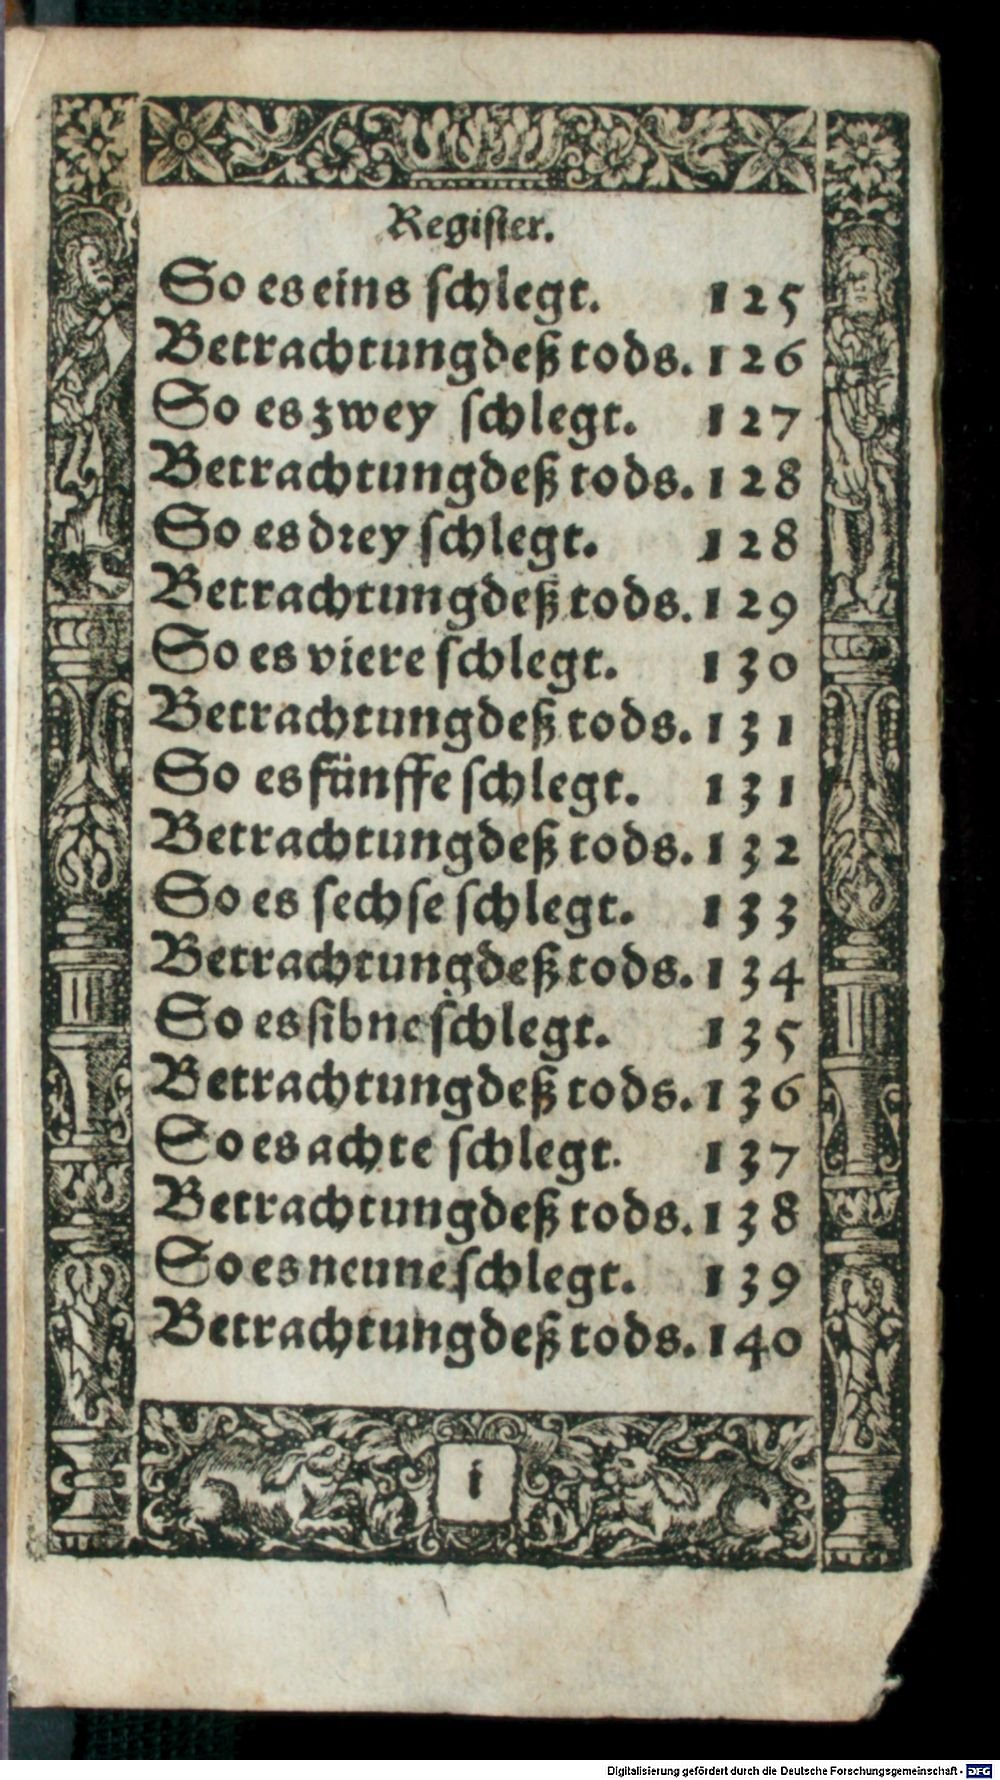 Register.
So es eins ſchlegt. 125
Betrachtung deß tods. 126
So es zwey ſchlegt. 127
Betrachtung deß tods. 128
So es drey ſchlegt. 128
Betrachtung deß tods. 129
So es viere ſchlegt. 130
Betrachtung deß tods. 131
So es fünffe ſchlegt. 131
Betrachtung deß tods. 132
So es ſechſe ſchlegt. 133
Betrachtung deß tods. 134
So es ſibne ſchlegt. 135
Betrachtung deß tods. 136
So es achte ſchlegt. 137
Betrachtung deß tods. 138
So es neune ſchlegt. 139
Betrachtung deß tods. 140
i
Digitalisierung gefördert durch die Deutsche Forschungsgemeinschaft - DFG